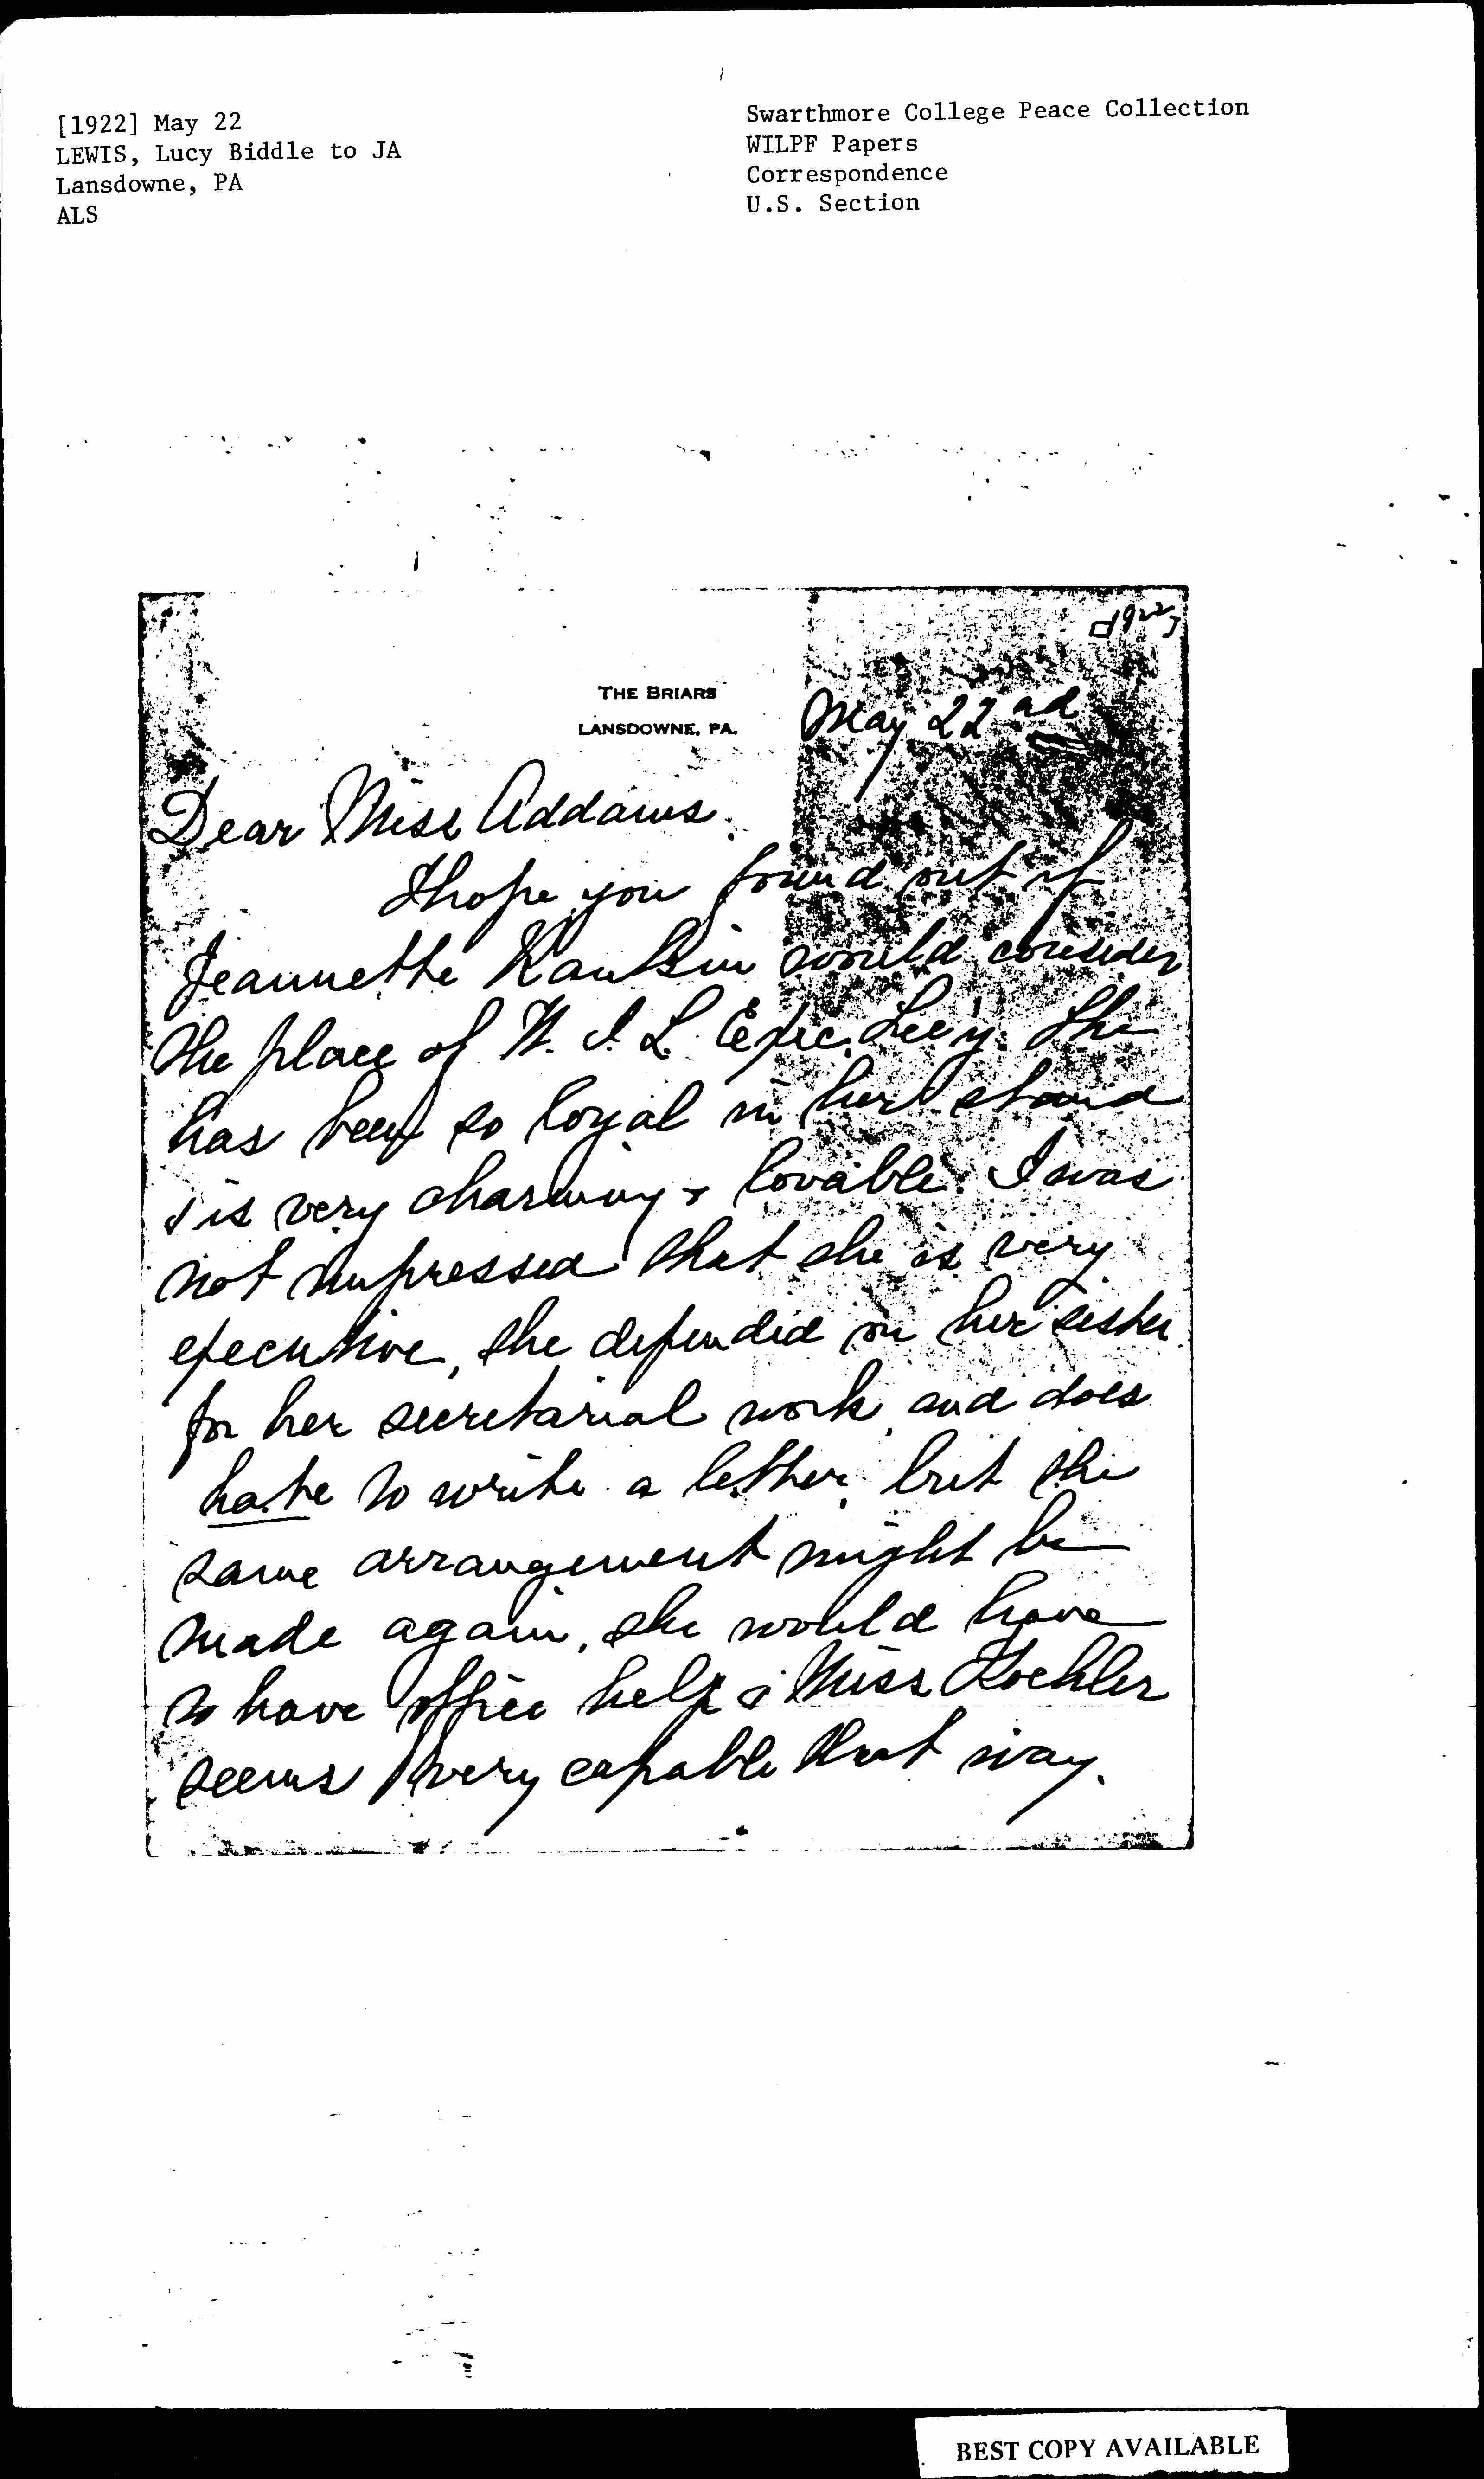 [1922] May 22
LEWIS, Lucy Biddle to JA
Lansdowne, PA
ALS
Swarthmore College Peace Collection
WILPF Papers
Correspondence
U.S. Section
[1922]
THE BRIARS
LANSDOWNE, PA.
May 22nd
Dear Miss Addams.
I hope you found out if
Jeannette Rankin would consider
the place of W. I. L. Exec. Sec'y. She
has been so loyal in her stand
& is very charming & lovable. I was
not impressed that she is very
executive, she depended on her sister
for her secretarial work, and does
hate to write a letter, but the
same arrangement might be
made again, she would have
to have office help & Miss Koehler
seems very capable that way.
BEST COPY AVAILABLE